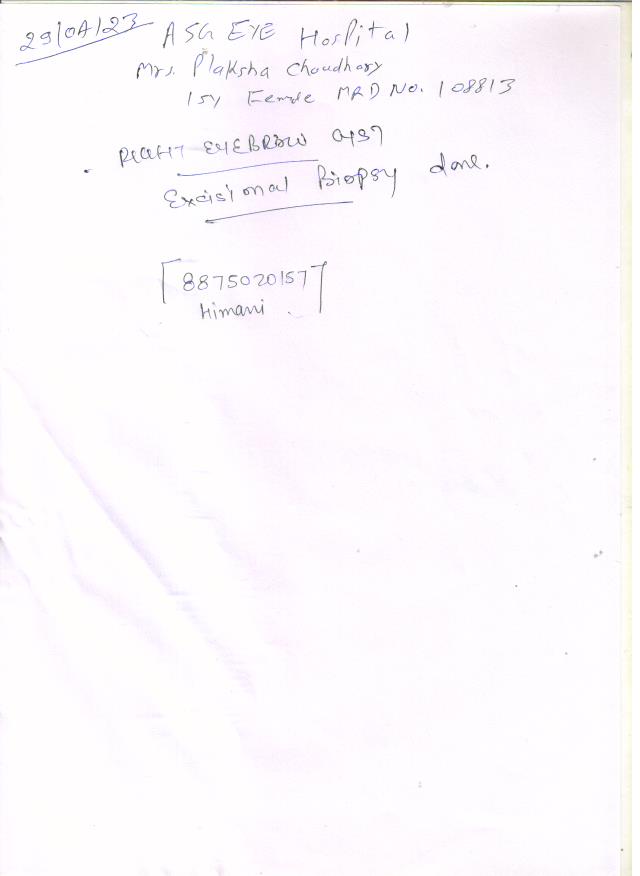 29/04/23 ASG EYE Hospital
Mrs. Plaksha Choudhary
15y Female MRD No. 108813
RIGHT EYEBROW CYST
Excisional Biopsy done.
8875020157
Himani